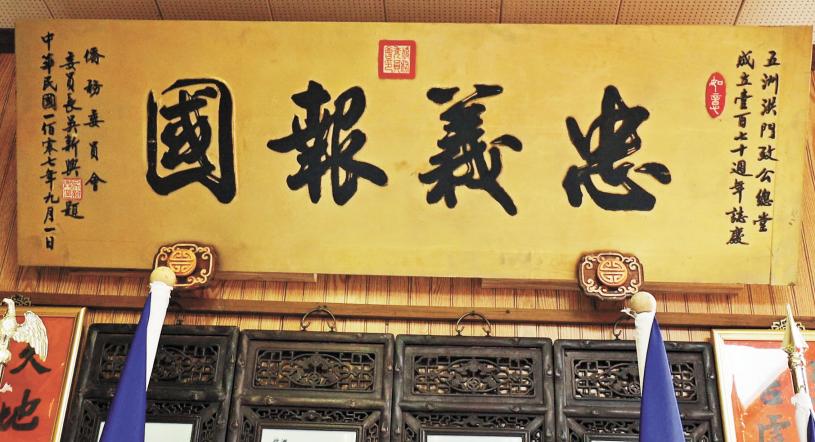 五洲洪門致公總堂
成立壹百七十週年誌慶
如意
忠義報國
僑務委員會
委員長吳新興題
中華民國一佰零七年九月一日
久
地